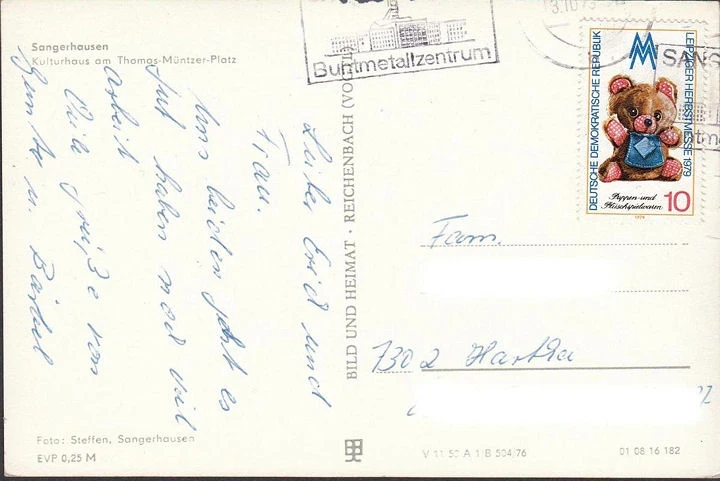 Sangerhausen
Kulturhaus am Thomas-Müntzer-Platz
Lieber Erid und
Frau.
Uns beiden geht es
gut haben noch viel
Arbeit
Viele Grüße von
Gunter u. Bärbel
Foto: Steffen, Sangerhausen
EVP 0,25 M
BILD UND HEIMAT · REICHENBACH (VOGTL)
V 11 50 A 1 B 504/76
01 08 16 182
Buntmetallzentrum
SANG
DEUTSCHE DEMOKRATISCHE REPUBLIK
LEIPZIGER HERBSTMESSE 1979
Puppen- und
Plüschspielwaren
10
1979
Fam.
7302 Hartha